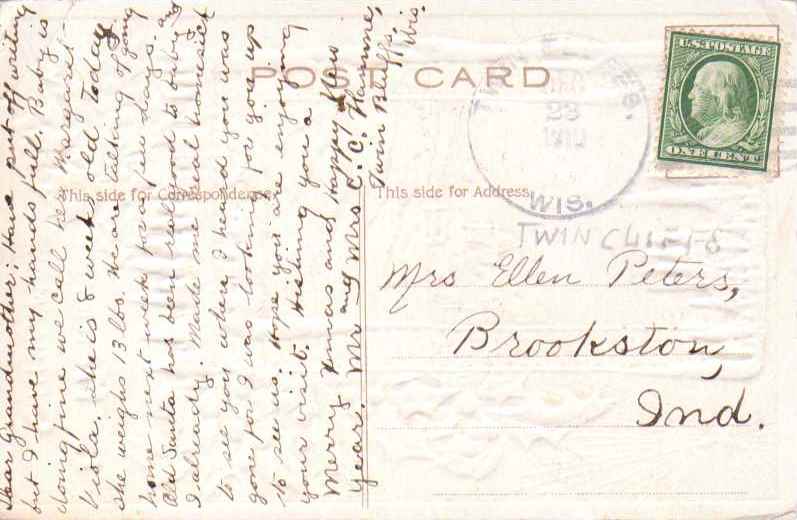 POST CARD
This side for Correspondence.
This side for Address.
U.S. POSTAGE
ONE CENT
23
1910
WIS.
TWIN CLIFFS
Mrs Ellen Peters,
Brookston,
Ind.
Dear Grandmother; Have put off writing
but I have my hands full. Baby is
doing fine we call her Margaret
Viola. she is 8 weeks old Today
she weighs 13 lbs. We are talking of going
home next week for a few days. and
Old Santa has been real good to baby
I already. Made me real homesick
to see you when I heard you was
gone for I was looking for you up
to see us. Hope you are enjoying
your visit. Wishing you a
Merry Xmas and Happy New
Year. Mr and Mrs C. C. Hamme,
Twin Bluffs,
Wis.